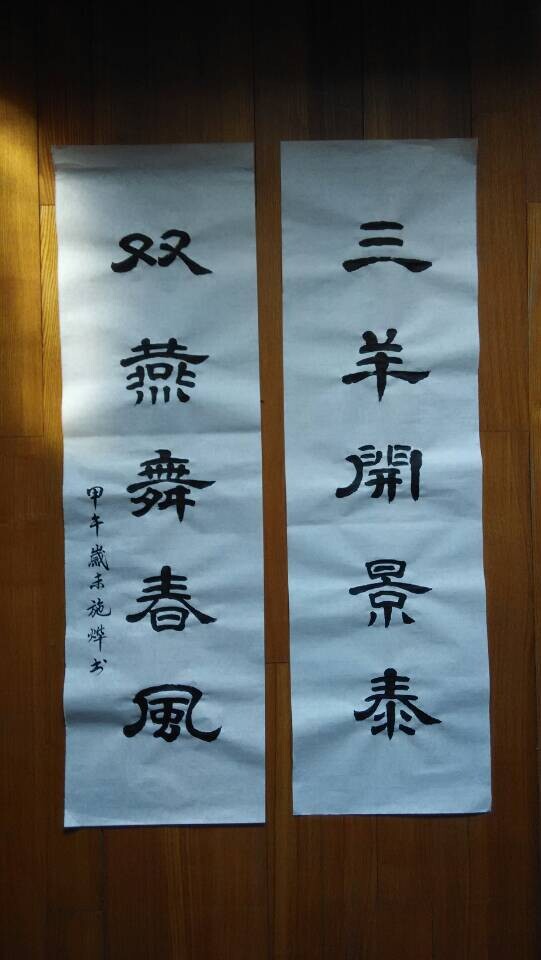 三羊開景泰
双燕舞春風
甲午歲末施燁书